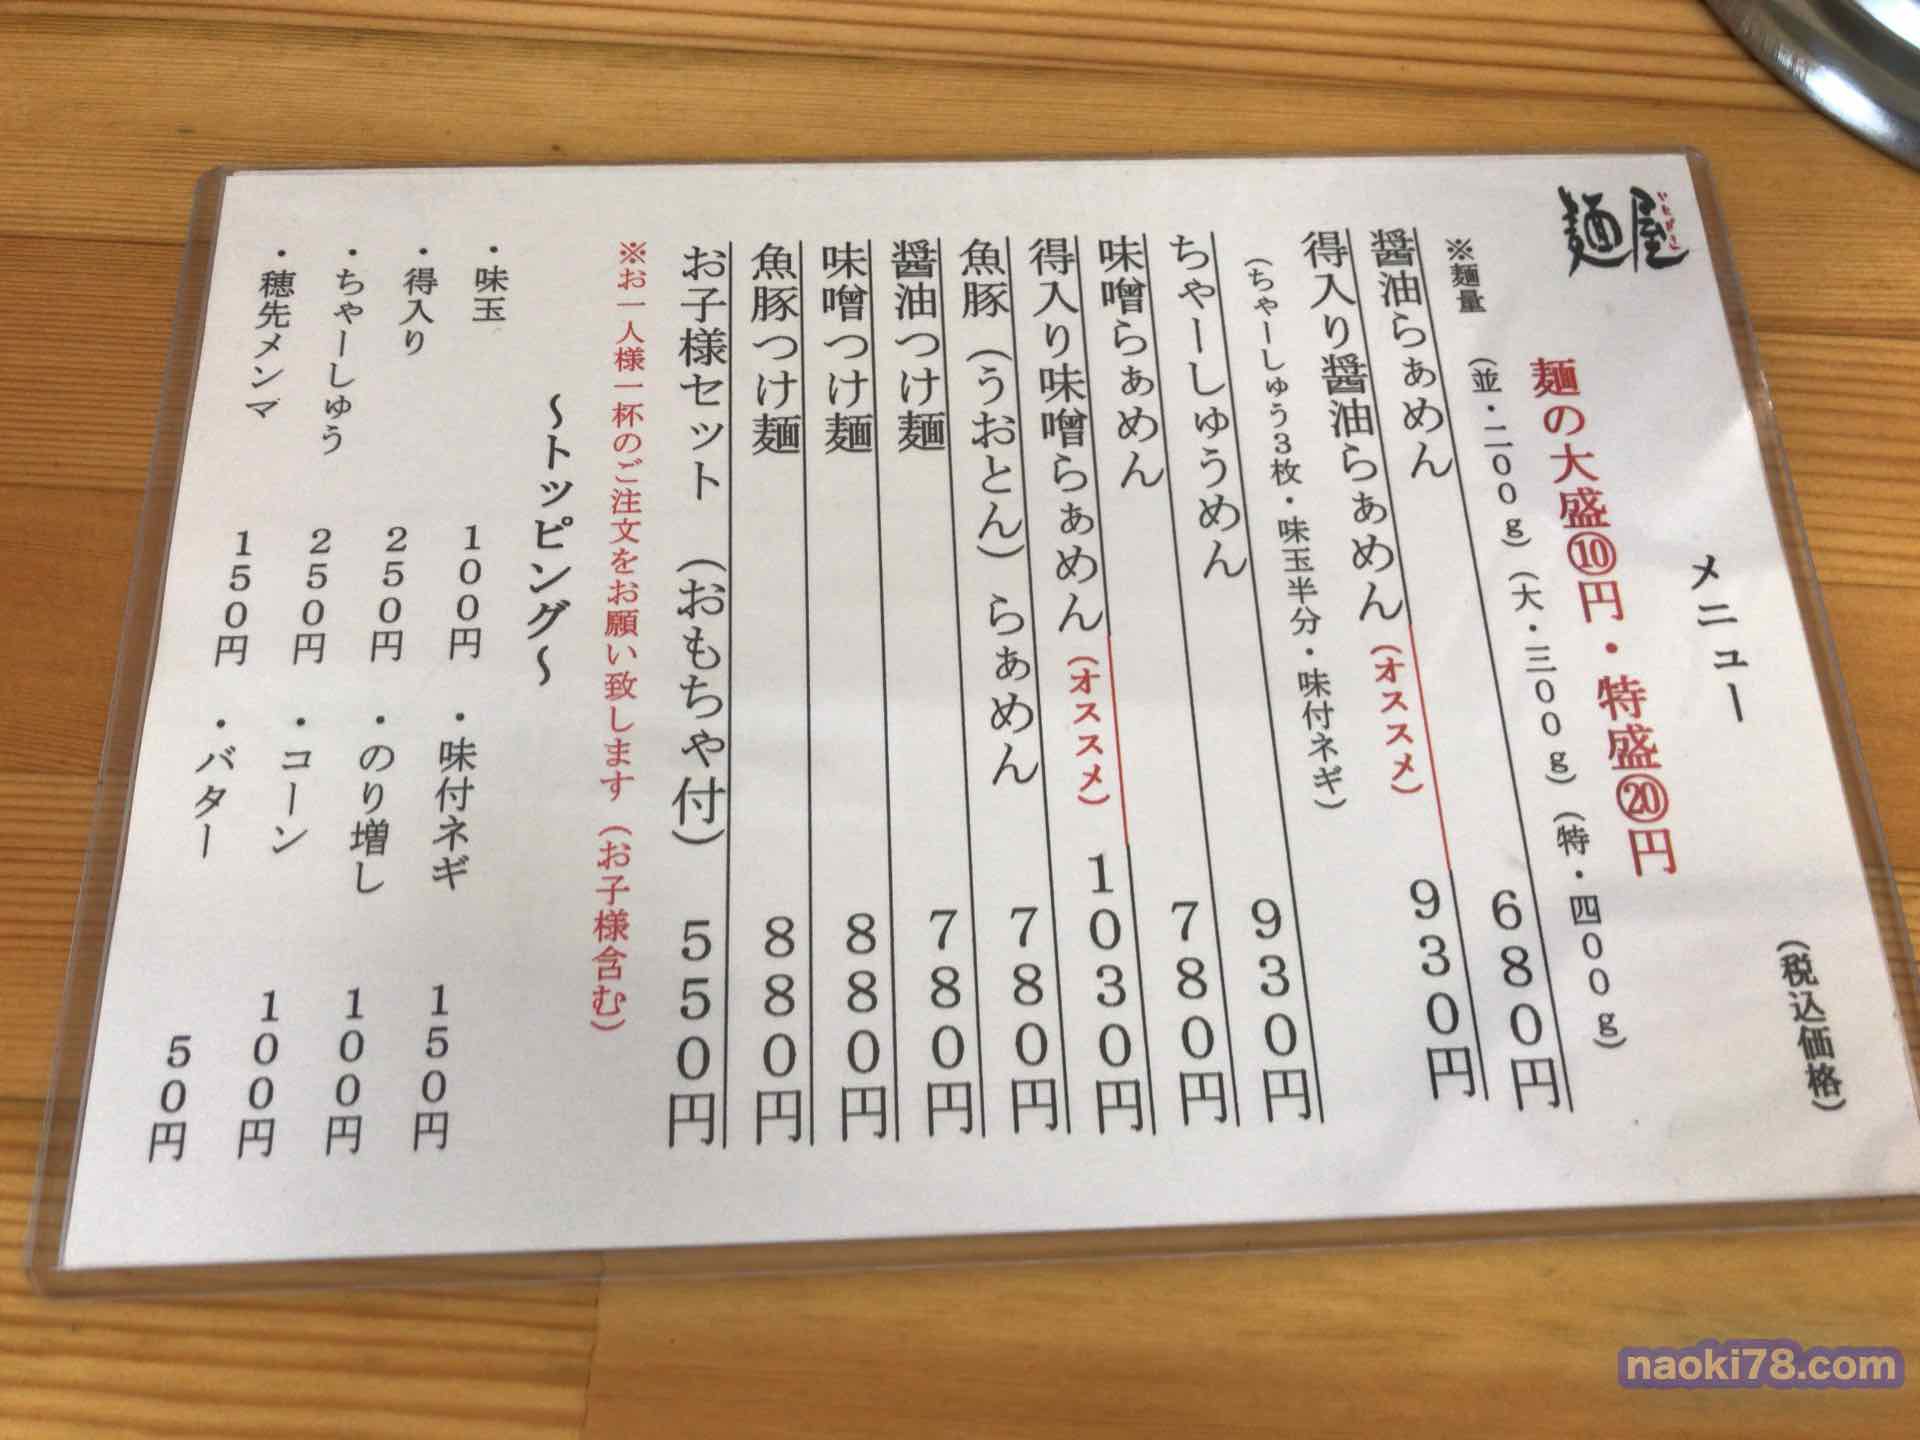 メニュー (税込価格)
麺屋
麺の大盛⑩円・特盛⑳円
※麺量 (並・二００ｇ)(大・三００ｇ)(特・四００ｇ)
醤油らぁめん ６８０円
得入り醤油らぁめん(オススメ) ９３０円
(ちゃーしゅう３枚・味玉半分・味付ネギ)
ちゃーしゅうめん ９３０円
味噌らぁめん ７８０円
得入り味噌らぁめん(オススメ) １０３０円
魚豚(うおとん)らぁめん ７８０円
醤油つけ麺 ７８０円
味噌つけ麺 ８８０円
魚豚つけ麺 ８８０円
お子様セット (おもちゃ付) ５５０円
※お一人様一杯のご注文をお願い致します (お子様含む)
～トッピング～
・味玉 １００円 ・味付ネギ １５０円
・得入り ２５０円 ・のり増し １００円
・ちゃーしゅう ２５０円 ・コーン １００円
・穂先メンマ １５０円 ・バター ５０円
naoki78.com